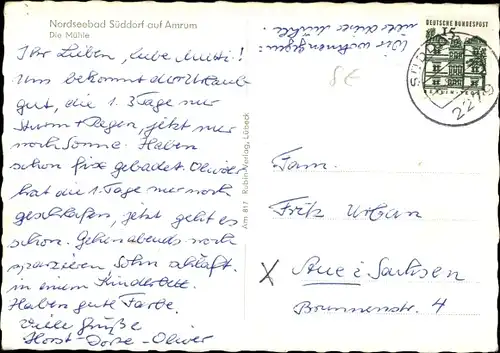 Nordseebad Süddorf auf Amrum
Die Mühle
Ihr Lieben, liebe Mutti!
Uns bekommt der Urlaub
gut, die 1. 3 Tage nur
Sturm + Regen, jetzt nur
noch Sonne. Haben
schon fix gebadet. Oliver
hat die 1. Tage nur noch
geschlafen, jetzt geht es
schon. Gehen abends noch
spazieren, Sohn schläft
in einem Kinderbett.
Haben gute Farbe.
Viele Grüße
Horst-Dore-Oliver
Am 817 Rubin-Verlag, Lübeck
Wir wohnen
Mühle.
DEUTSCHE BUNDESPOST
15
2279
5€
Fam.
Fritz Urban
X Aue i. Sachsen
Brunnenstr. 4